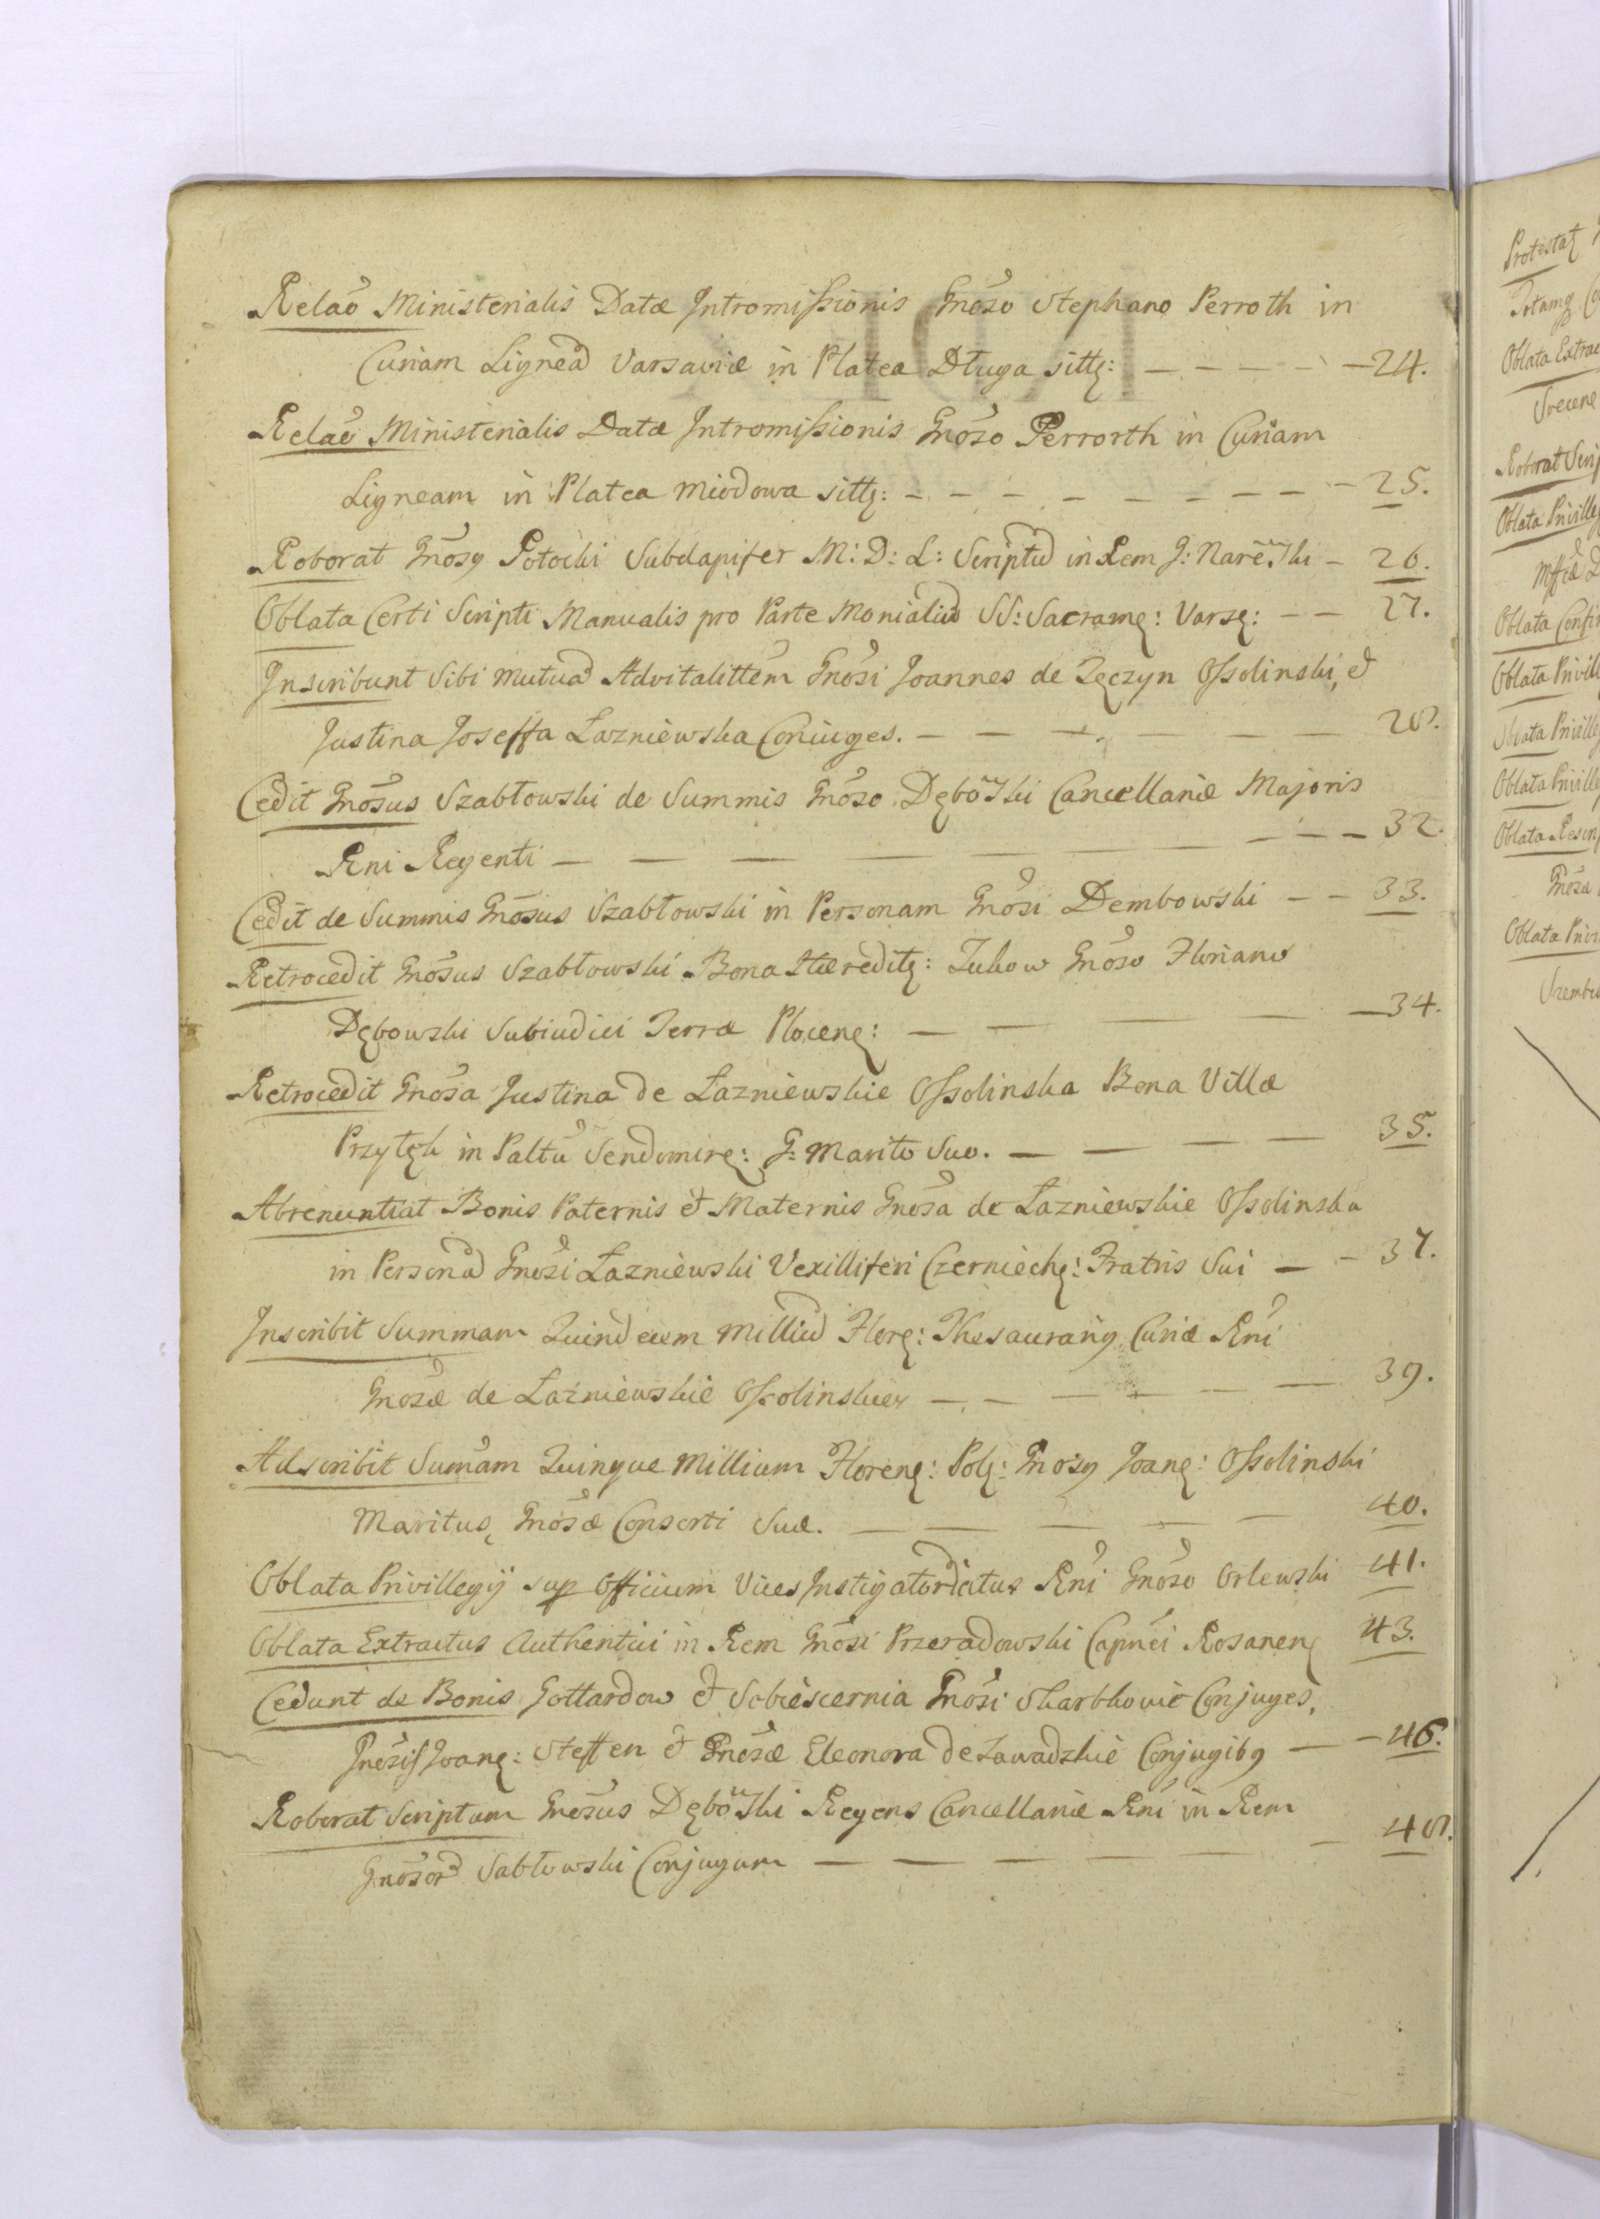 Relaõ Ministerialis Datæ Intromissionis Gnoso Stephano Perroth in
Curiam Ligneã Varsaviæ in Platea Długa sittę: 24.
Relaõ Ministerialis Datæ Intromissionis Gnoso Perrorth in Curiam
Ligneam in Platea Miodowa sittę: 25.
Roborat Gnosg Potocki Subdapifer M: D: L: Scriptũ in Rem G: 26.
Oblata Certi Scripti Manualis pro Parte Monialiũ SS: Sacramę: Varsę: 27.
Inscribunt Sibi Mutuã Advitalittem Gnosi Joannes de Tęczyn Ossolinski, &
Justina Joseffa Łazniewska Coniuges. 28.
Cedit Gnosus Szabłowski de Summis Gnoso Dębowski Cancellariæ Majoris
Rni Regenti 32.
Cedit de Summis Gnosus Szabłowski in Personam Gnosi Dembowski 33.
Retrocedit Gnosus Szabłowski Bona Hæreditę: Gnoso Floriano
Dębowski Subiudici Terræ Plocenę: 34.
Retrocedit Gnosa Justina de Łazniewskie Ossolinska Bona Villæ
Przytęk in Paltu Sendomirę: G: Marito Suo. 35.
Abrenuntiat Bonis Paternis & Maternis Gnosa de Łazniewskie Ossolinska
in Personã Gnosi Łazniewski Vexilliferi Czerniechę: Fratris Sui 37.
Inscribit Summam Quindecem Milliũ Florę: Thesaurarig Curiæ Rni
Gnosæ de Łazniewskie Ossolinskiey 39.
Adscribit Sumam Quinque Millium Florenę: Polę: Gnosg Joanę: Ossolinski
Maritus, Gnosæ Consorti Suæ. 40.
Oblata Privillegij sup Officium Vices Instigatordicitus Rni Gnoso Orlewski 41.
Oblata Extractus Authentici in Rem Gnosi Przeradowski Capnei Rosanenę 43.
Cedunt de Bonis Gottardow & Sobiescernia Gnosi Skarbkovie Conjuges,
Gnosis Joanę: Steffen & Gnosæ Eleonora de Zawadzkie Conjugibg 46.
Roborat Scriptum Gnosus Dębowski Regens Cancellariæ Rni in Rem
Gnosor Sabłowski Conjugum 48.
Protestat
Oblata Extrac
Srecene
Roborat Scrip
Oblata Privilleg
Oblata Confir
Oblata Privill
Oblata Privilleg
Oblata Privilleg
Oblata Rescrip
Gnosa
Oblata Privi
Szembe